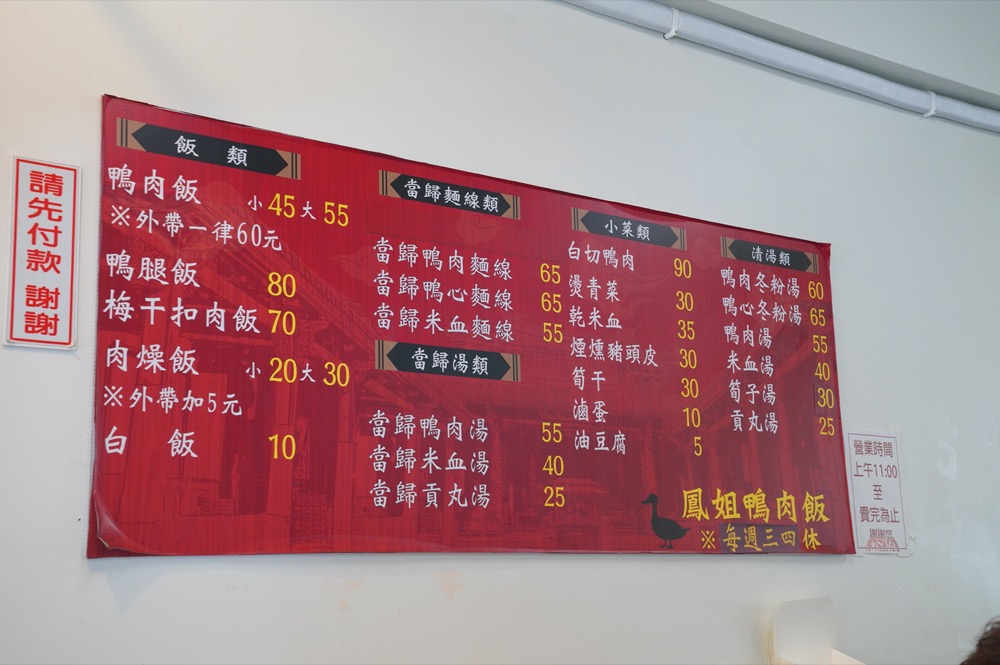 請先付款 謝謝
飯類
鴨肉飯 小45大55
※外帶一律60元
鴨腿飯 80
梅干扣肉飯 70
肉燥飯 小20大30
※外帶加5元
白飯 10
當歸麵線類
當歸鴨肉麵線 65
當歸鴨心麵線 65
當歸米血麵線 55
當歸湯類
當歸鴨肉湯 55
當歸米血湯 40
當歸貢丸湯 25
小菜類
白切鴨肉 90
燙青菜 30
乾米血 35
煙燻豬頭皮 30
筍干 30
滷蛋 10
油豆腐 5
清湯類
鴨肉冬粉湯 60
鴨心冬粉湯 65
鴨肉湯 55
米血湯 40
筍子湯 30
貢丸湯 25
鳳姐鴨肉飯
※每週三四休
營業時間
上午11:00
至
賣完為止